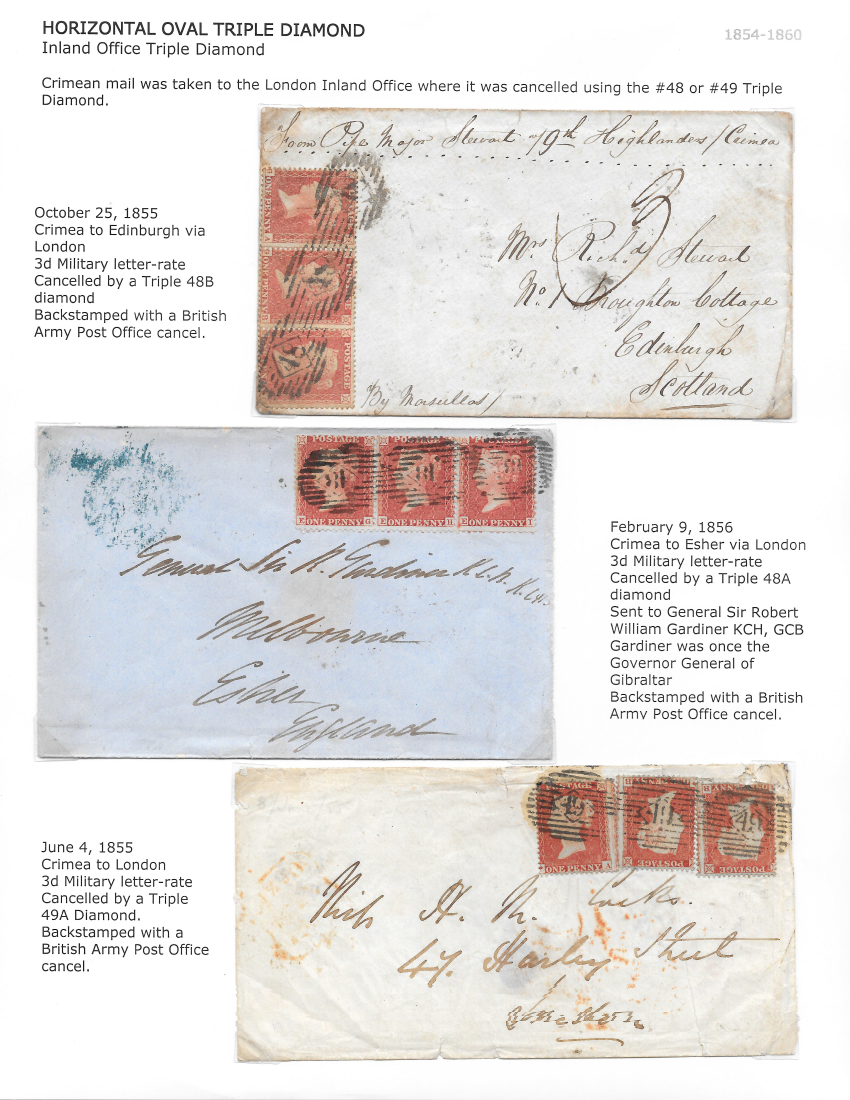 HORIZONTAL OVAL TRIPLE DIAMOND
1854-1860
Inland Office Triple Diamond
Crimean mail was taken to the London Inland Office where it was cancelled using the #48 or #49 Triple
Diamond.
From Pipe Major Stewart 79th Highlanders / Crimea
October 25, 1855
Crimea to Edinburgh via
London
3d Military letter-rate
Cancelled by a Triple 48B
diamond
Backstamped with a British
Army Post Office cancel.
3
Mrs Richd Stewart
No. 1 Broughton Cottage
Edinburgh
Scotland
By Marseilles /
POSTAGE
ONE PENNY
48
POSTAGE
E ONE PENNY G
E ONE PENNY H
E ONE PENNY I
General Sir R. Gardiner K.C.B.
Melbourne
Esher
England
February 9, 1856
Crimea to Esher via London
3d Military letter-rate
Cancelled by a Triple 48A
diamond
Sent to General Sir Robert
William Gardiner KCH, GCB
Gardiner was once the
Governor General of
Gibraltar
Backstamped with a British
Army Post Office cancel.
June 4, 1855
Crimea to London
3d Military letter-rate
Cancelled by a Triple
49A Diamond.
Backstamped with a
British Army Post Office
cancel.
ONE PENNY A
POSTAGE
POSTAGE
49
Miss H. M. Cocks.
47. Harley Street
London